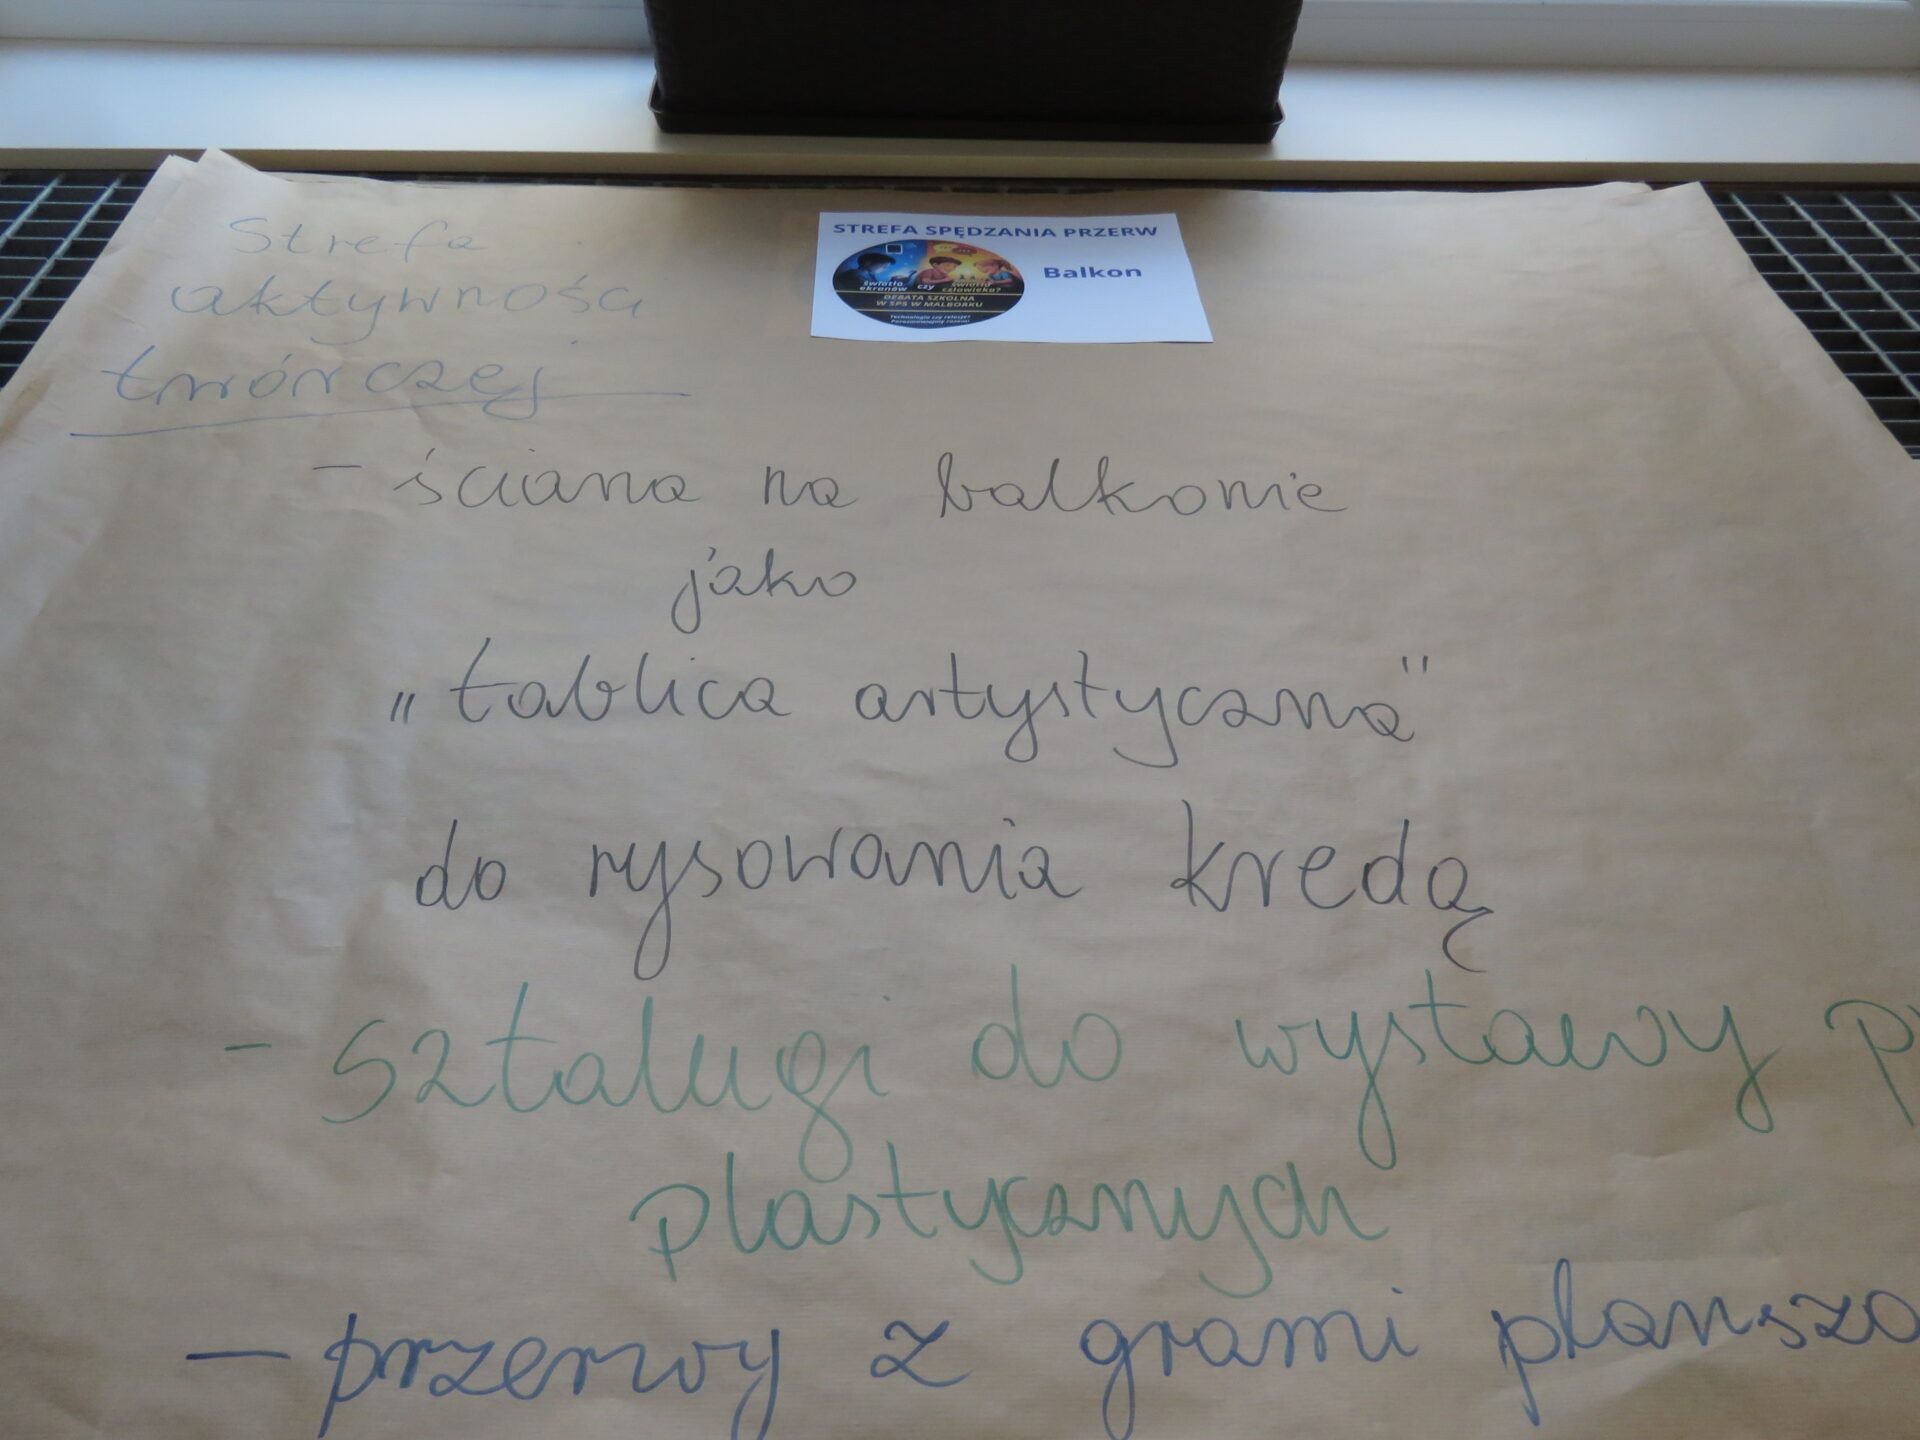 STREFA SPĘDZANIA PRZERW
Balkon
światło ekranów czy światło człowieka?
DEBATA SZKOLNA
W SP5 W MALBORKU
Technologia czy relacje?
Porozmawiajmy razem!
Strefa
aktywności
twórczej
- ściana na balkonie
jako
„tablica artystyczna"
do rysowania kredą
- sztalugi do wystawy
plastycznych
- przerwy z grami